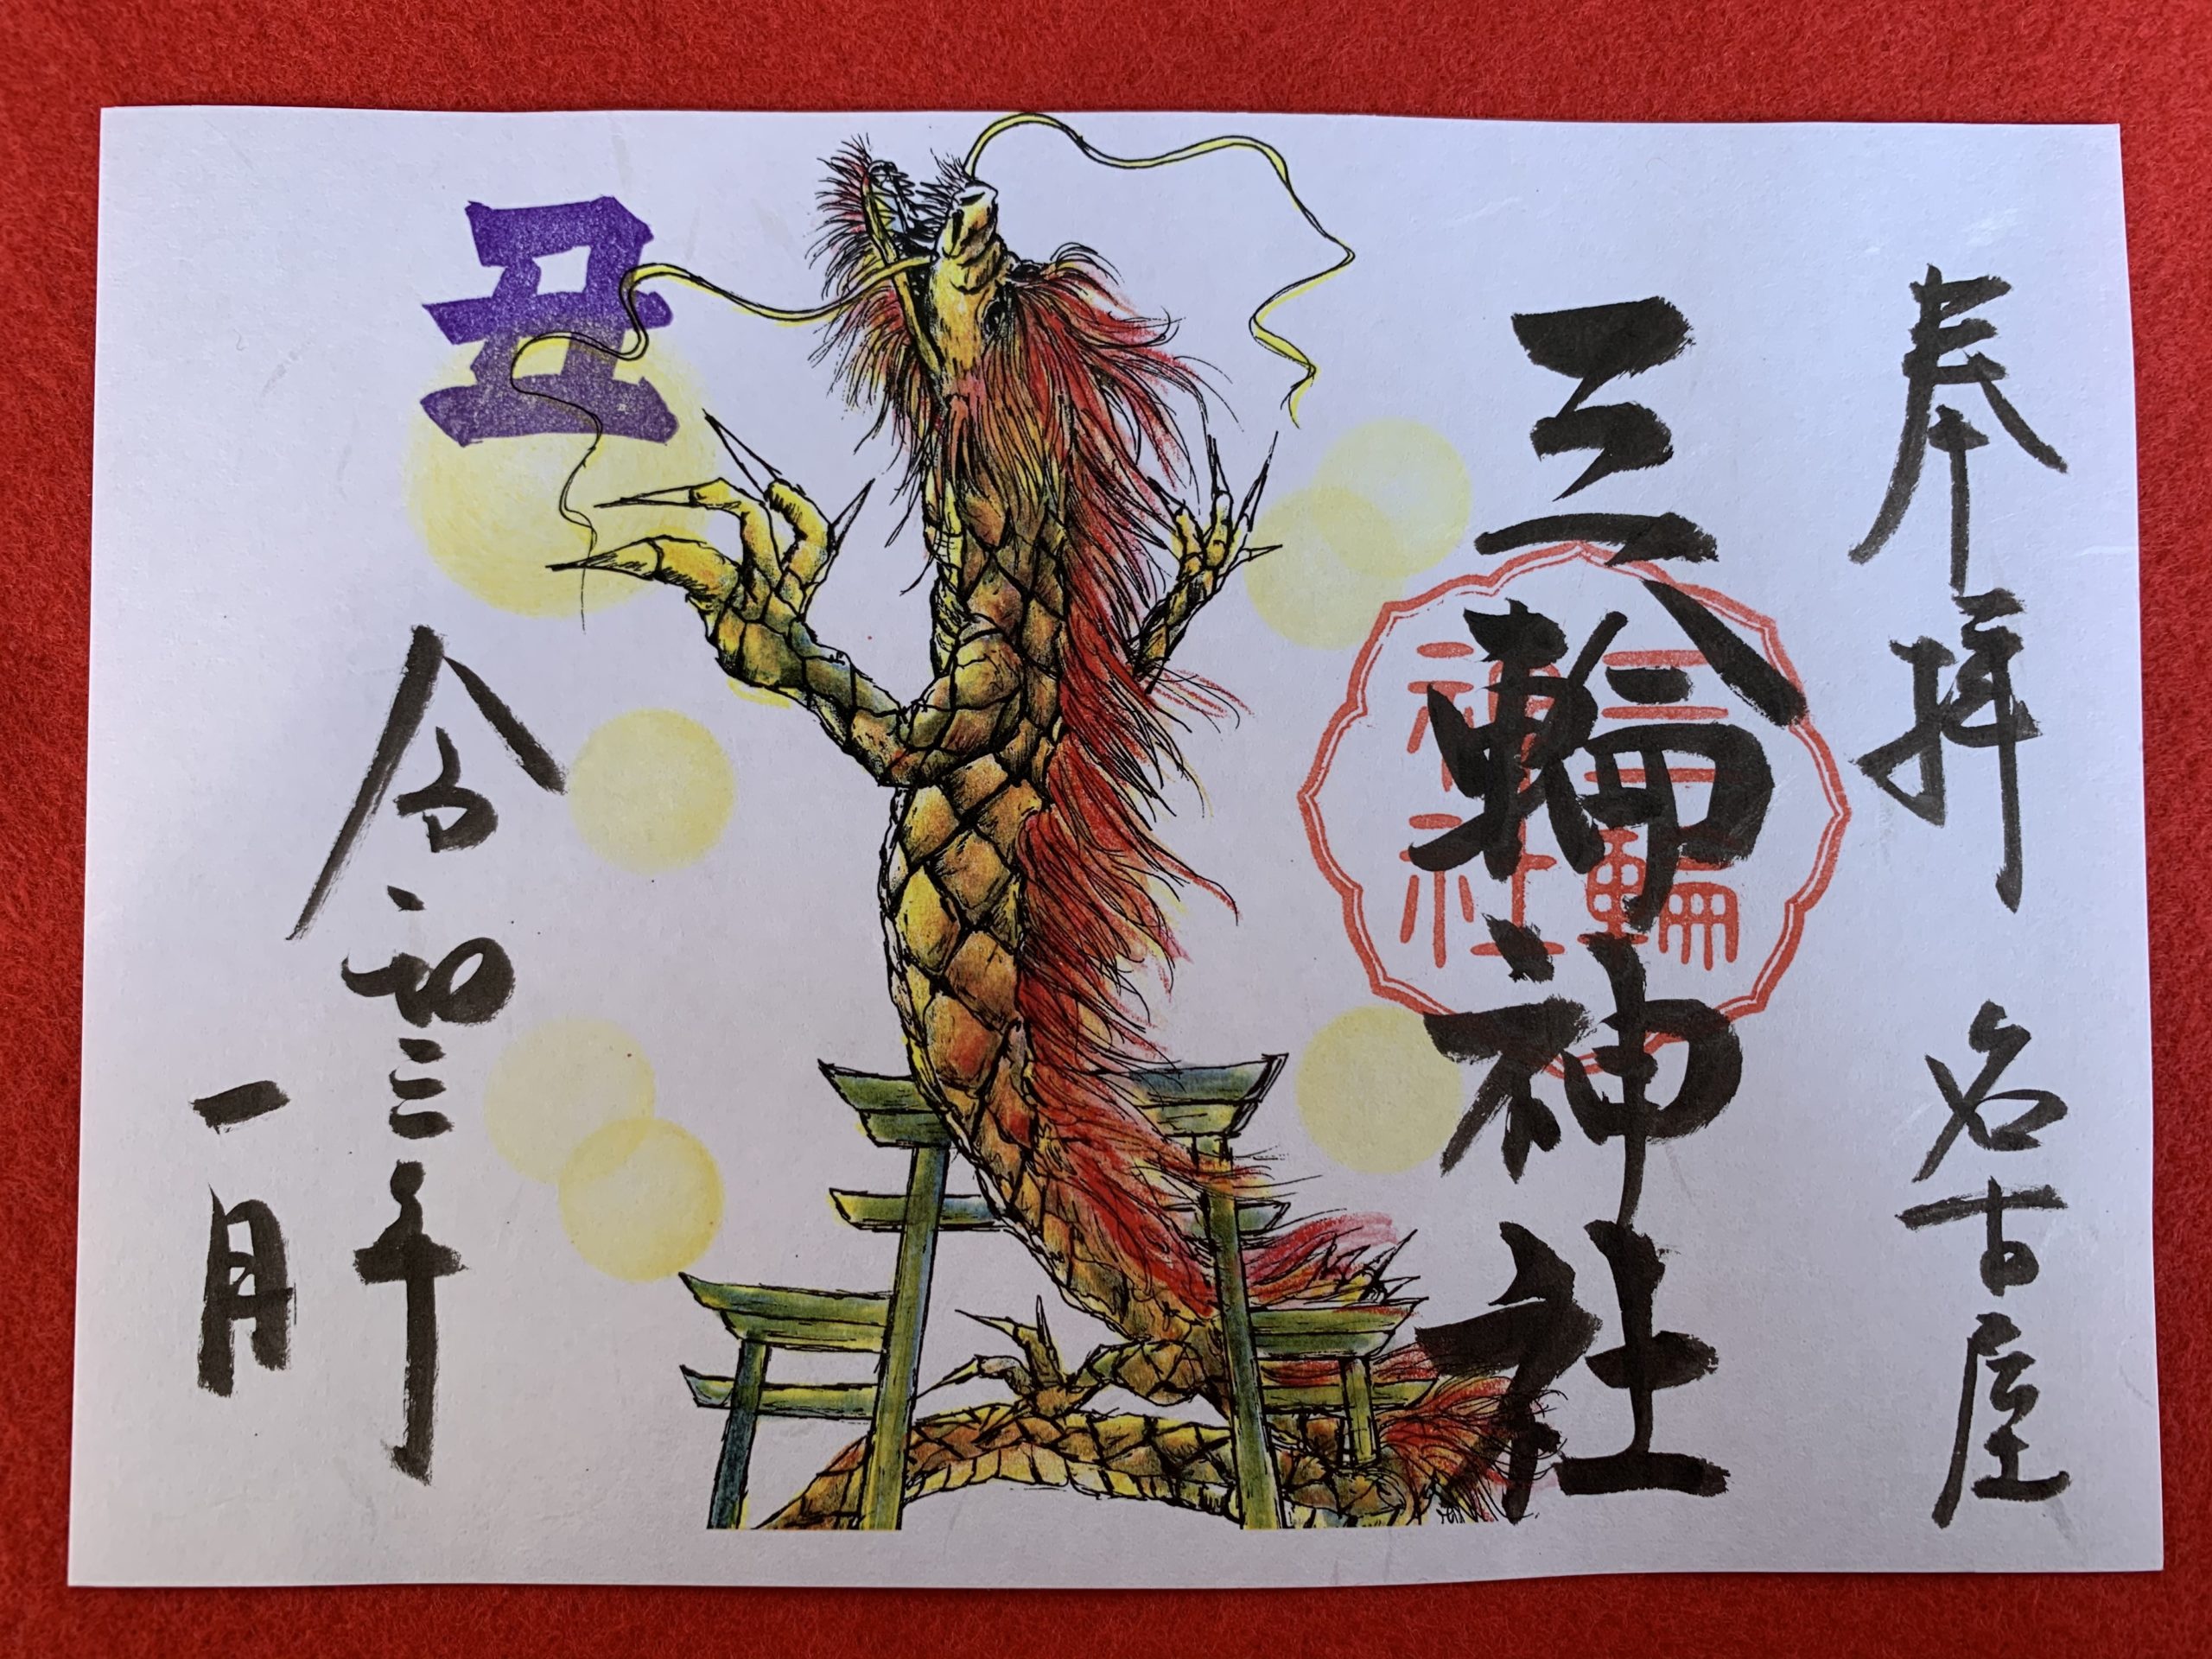 奉拝 名古屋
三輪神社
三輪
神社
丑
令和三年
一月